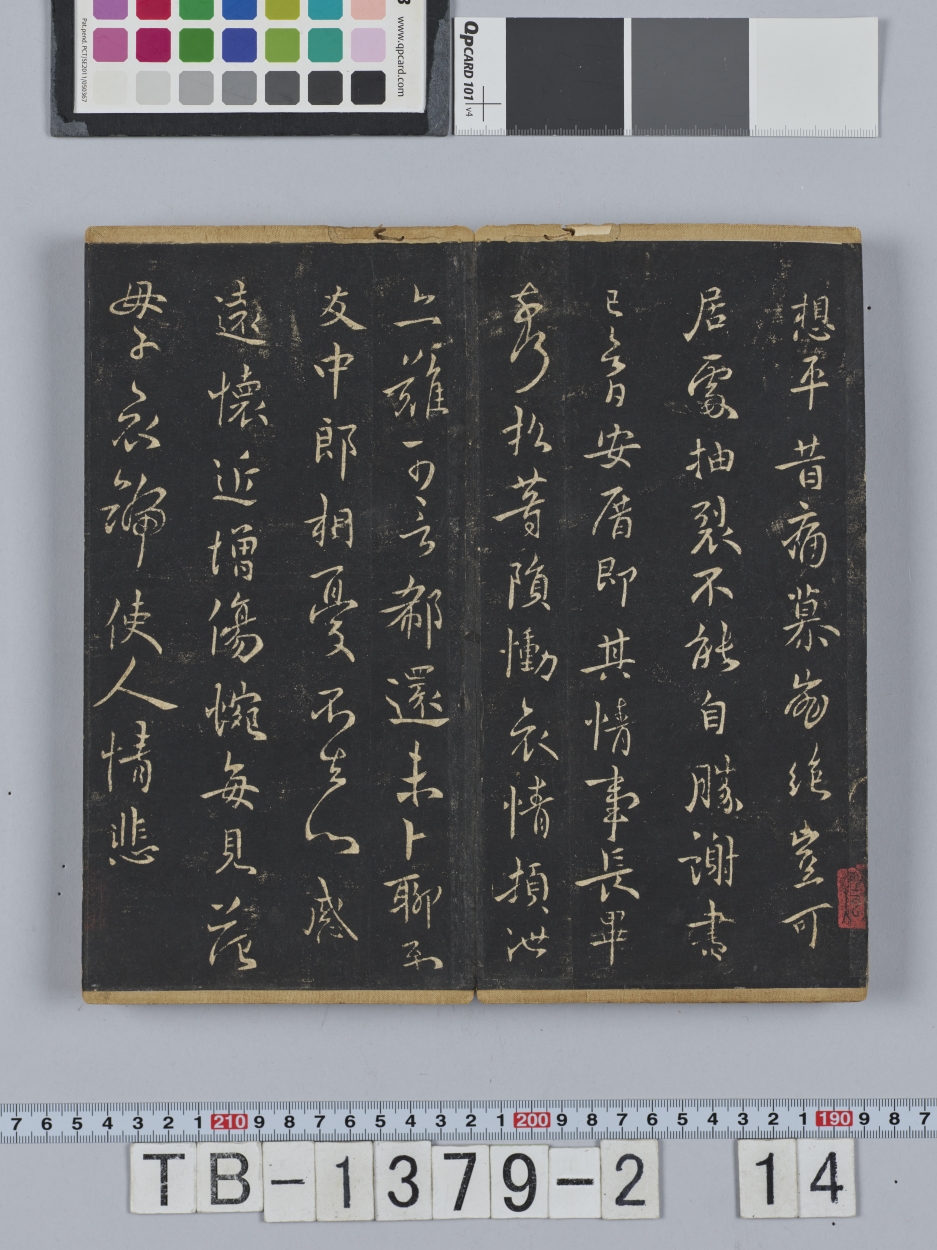 想平昔痛慕崩絶豈可
居處抽裂不能自勝謝書
已安厝即其情事長畢
松等隕慟哀情頓泄
難可言郗還未卜聊示
友中郎相憂不去心感
遠懷近增傷惋每見范
母子哀使人情悲
www.qpcard.com
QPCARD 101 v4
7 6 5 4 3 2 1 210 9 8 7 6 5 4 3 2 1 200 9 8 7 6 5 4 3 2 1 190 9 8 7
TB-1379-2 14